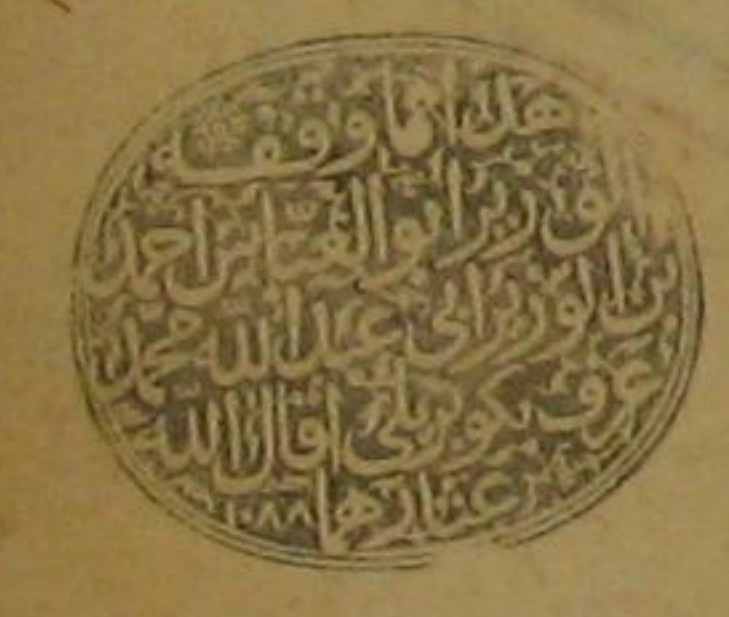 هذا ما وقفه
الوزير ابو العباس احمد
بن الوزير ابي عبد الله محمد
عرف بكوپريلي اقال الله
عثارهما ١٠٨٨